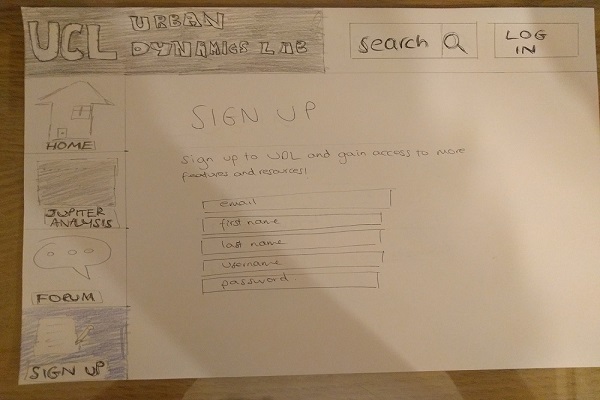 UCL URBAN
DYNAMICS LAB
search
LOG
IN
HOME
JUPITER
ANALYSIS
FORUM
SIGN UP
SIGN UP
Sign up to UDL and gain access to more
features and resources!
email
first name
last name
username
password